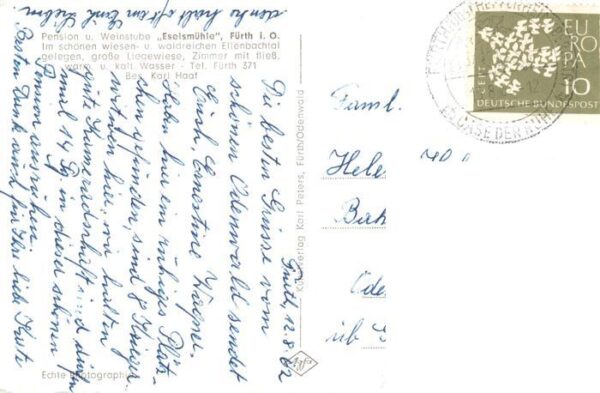 Pension u. Weinstube "Eselsmühle", Fürth i. O.
Im schönen wiesen- u. waldreichen Ellenbachtal
gelegen, große Liegewiese, Zimmer mit fließ.
warm. u. kalt Wasser - Tel. Fürth 371
Bes. Karl Haaf
Fürth 12.8.62
Die besten Grüsse vom
schönen Odenwald sendet
Erich, Ernestine Wagner.
Haben hier ein ruhiges Plätz-
chen gefunden, sind 8 Krieger-
witwen hier, wir halten
gute Kameradschaft und dürfen
mal 14 Tg. in dieser schönen
Pension ausruhen.
Besten Dank auch für Ihre lieb Karte
denke halt oft an
Echte Photographie
Kunstverlag Karl Peters, Fürth/Odenwald
Agfa
Faml.
Hele
Bahn
Ode
üb
EUROPA
CEPT
10
DEUTSCHE BUNDESPOST